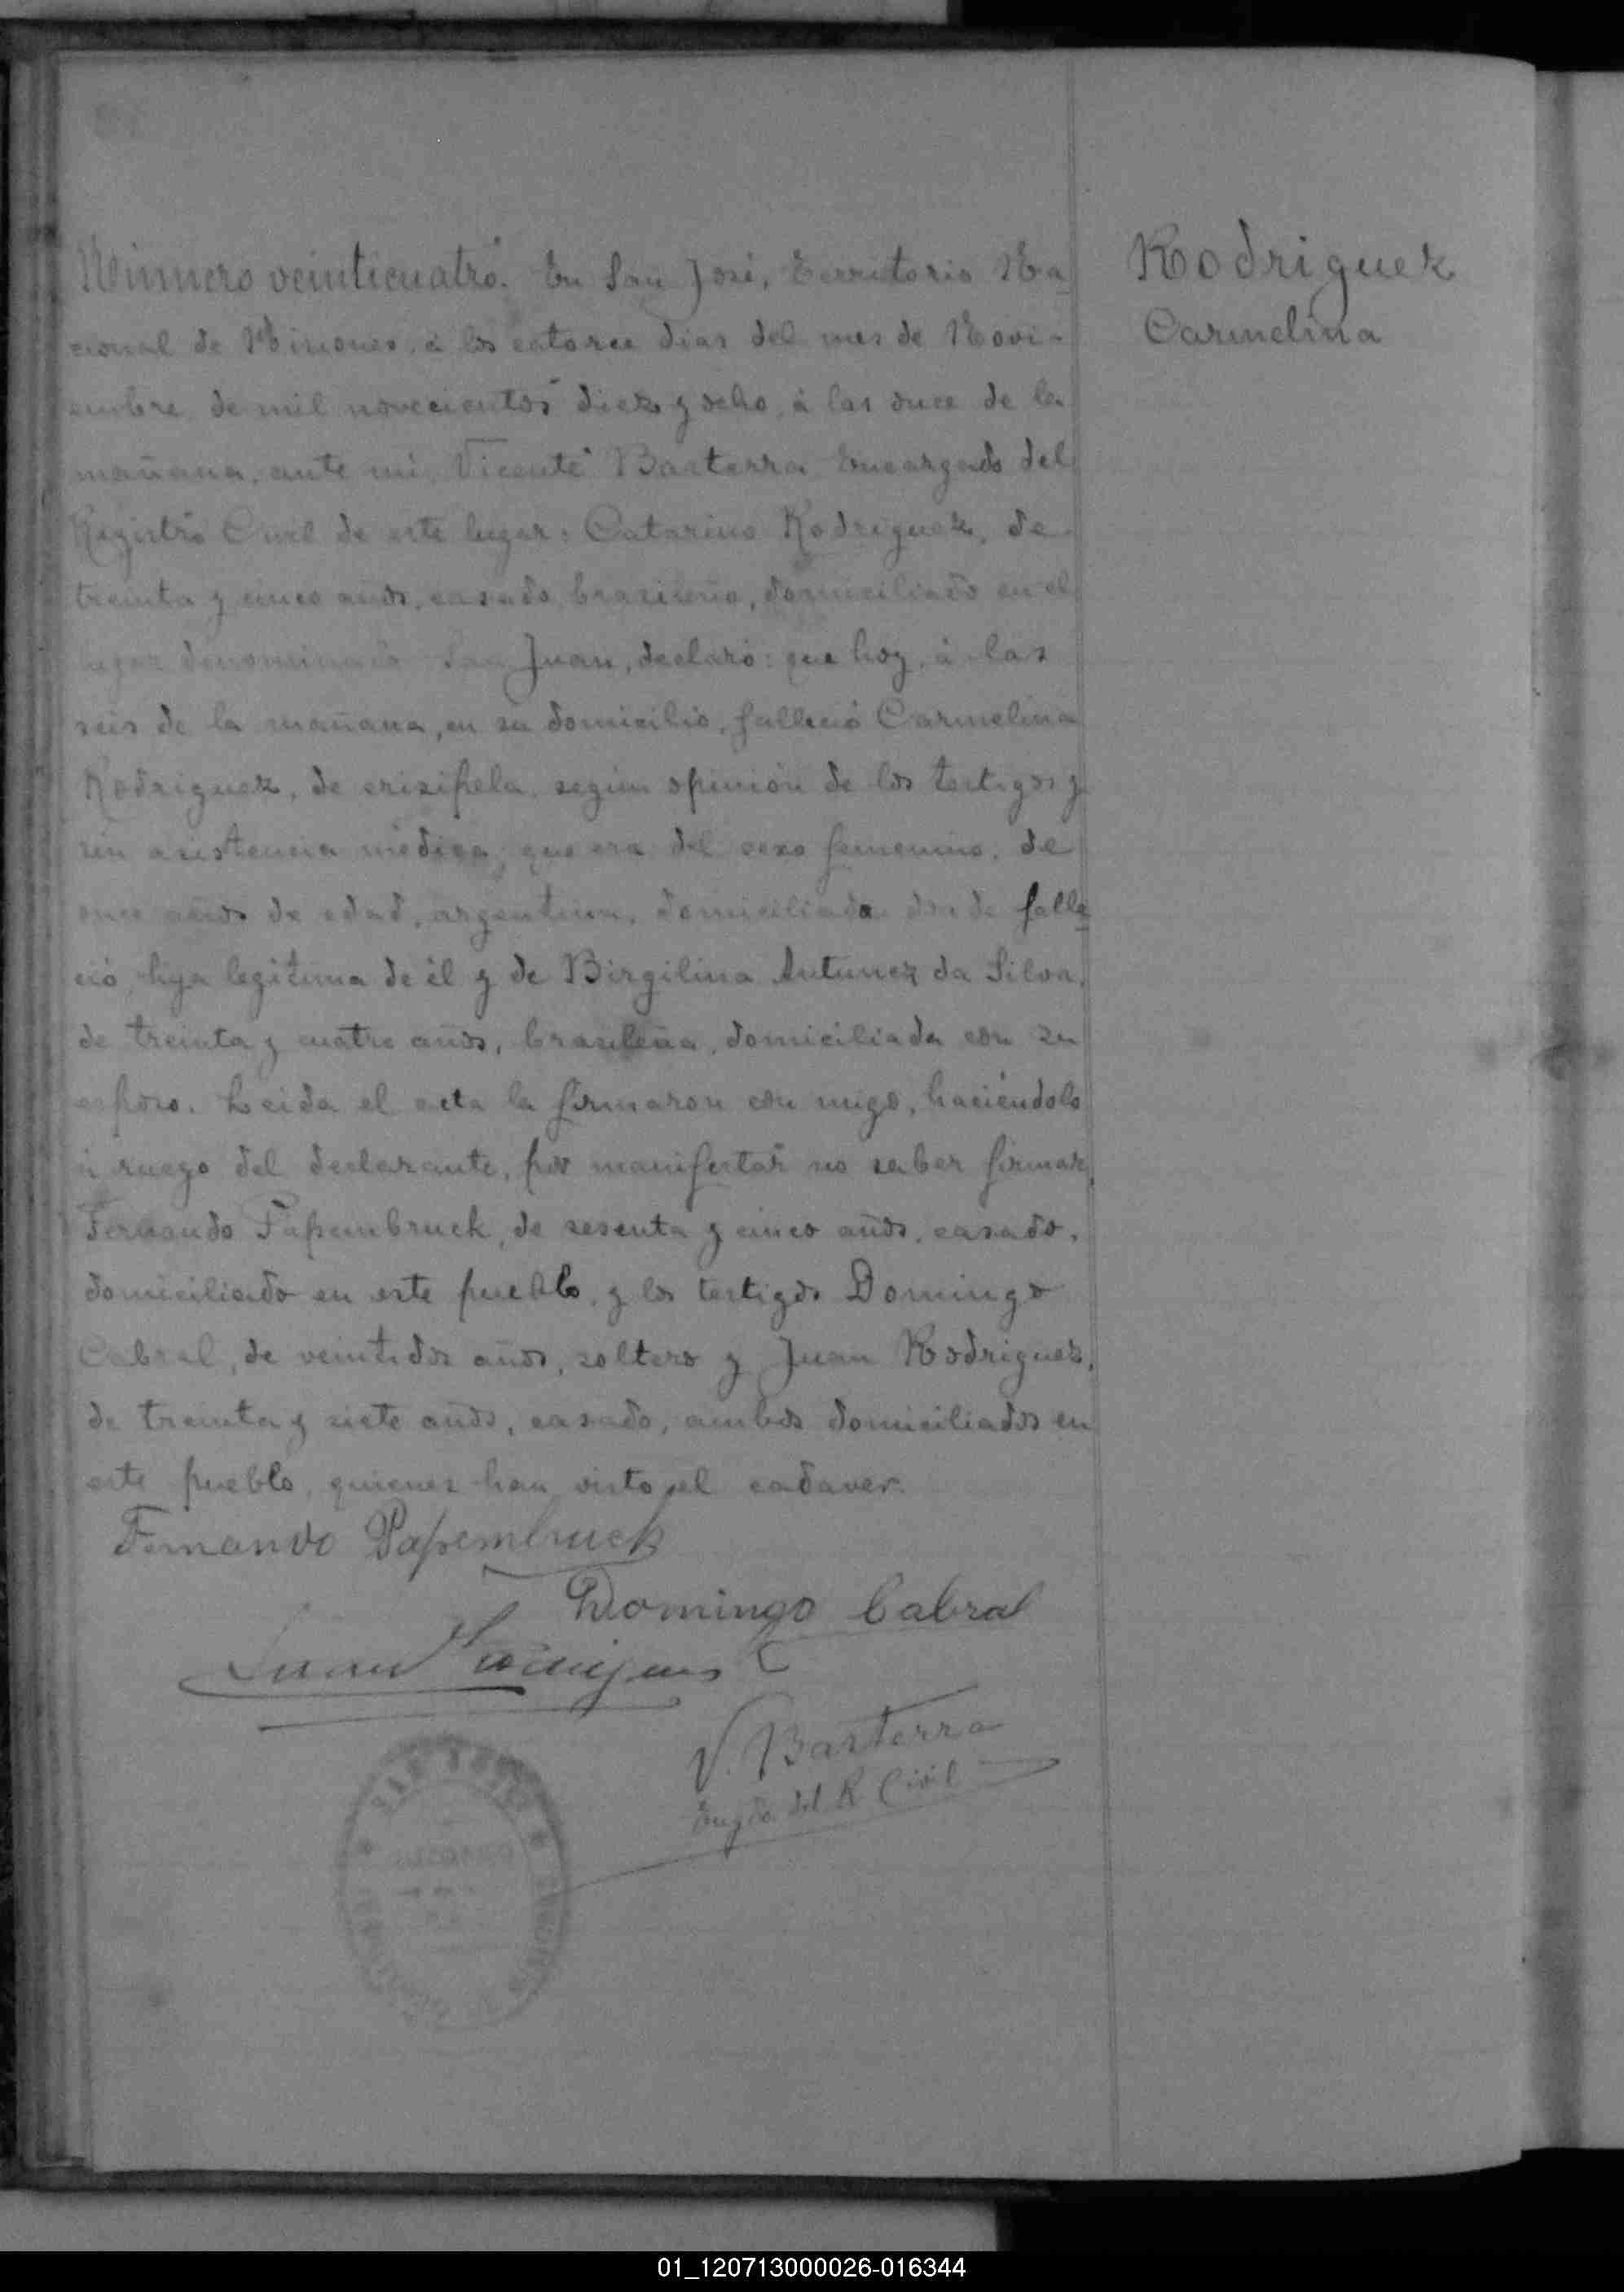 Número veinticuatro. En San José, Territorio Na-
cional de Misiones, á los catorce dias del mes de Novi-
embre de mil novecientos diez y ocho, á las once de la
mañana, ante mi, Vicente Basterra Encargado del
Registro Civil de este lugar: Catarino Rodriguez, de
treinta y cinco años, casado, brasileño, domiciliado en el
lugar denominado San Juan, declaró: que hoy, á las
seis de la mañana, en su domicilio, falleció Carmelina
Rodriguez, de erisipela, según opinión de los testigos y
sin asistencia médica; que era del sexo femenino, de
once años de edad, argentina, domiciliada donde falle-
ció, hija legitima de él y de Birgilina Antunez da Silva,
de treinta y cuatro años, brasileña, domiciliada con su
esposo. Leida el acta la firmaron con migo, haciéndolo
á ruego del declarante, por manifestar no saber firmar,
Fernando Papembruck, de sesenta y cinco años, casado,
domiciliado en este pueblo, y los testigos Domingo
Cabral, de veintidos años, soltero y Juan Rodriguez,
de treinta y siete años, casado, ambos domiciliados en
este pueblo, quienes han visto el cadaver.
Rodriguez
Carmelina
Fernando Papembruck
Domingo Cabral
Juan Rodriguez
V. Basterra
Engdo. del R. Civil
SAN JOSÉ
01_120713000026-016344